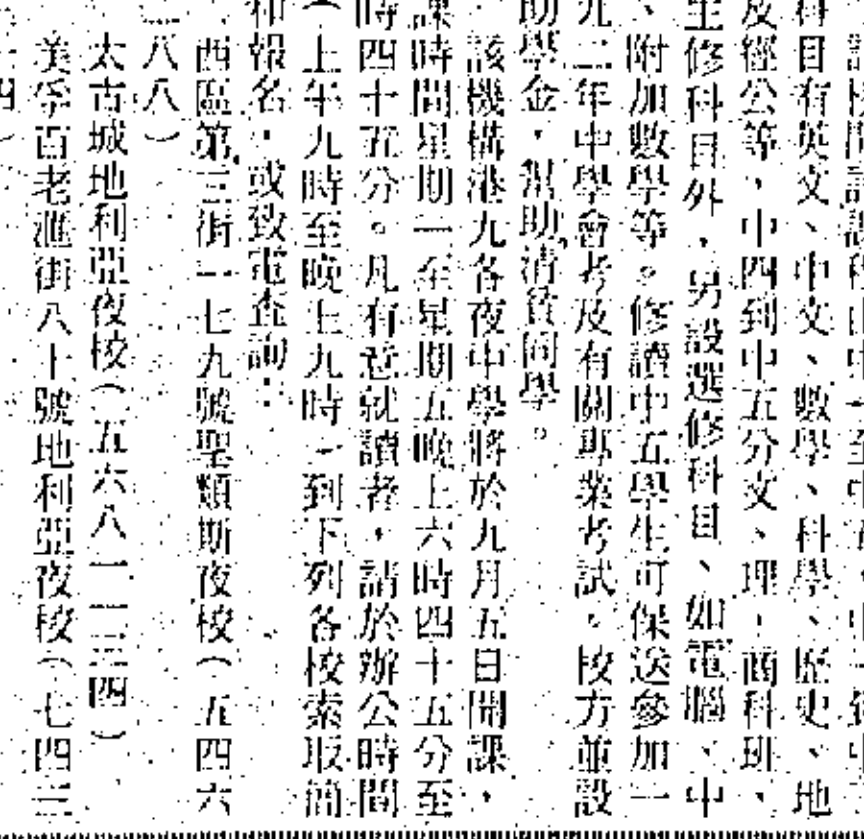 課程由中一至中五，中一到中三
科目有英文、中文、數學、科學、歷史、地
及經公等，中四到中五分文、理，商科班，
主修科目外，另設選修科目、如電腦、中
、附加數學等。修讀中五學生可保送參加一
九二年中學會考及有關專業考試。校方並設
助學金，幫助清貧同學。
該機構港九各夜中學將於九月五日開課，
課時間星期一至星期五晚上六時四十五分至
時四十五分。凡有意就讀者，請於辦公時間
（上午九時至晚上九時）到下列各校索取簡
和報名，或致電查詢：
西區第三街一七九號聖類斯夜校（五四六
八八）
太古城地利亞夜校（五六八一一三四）
美孚百老滙街八十號地利亞夜校（七四三
四）